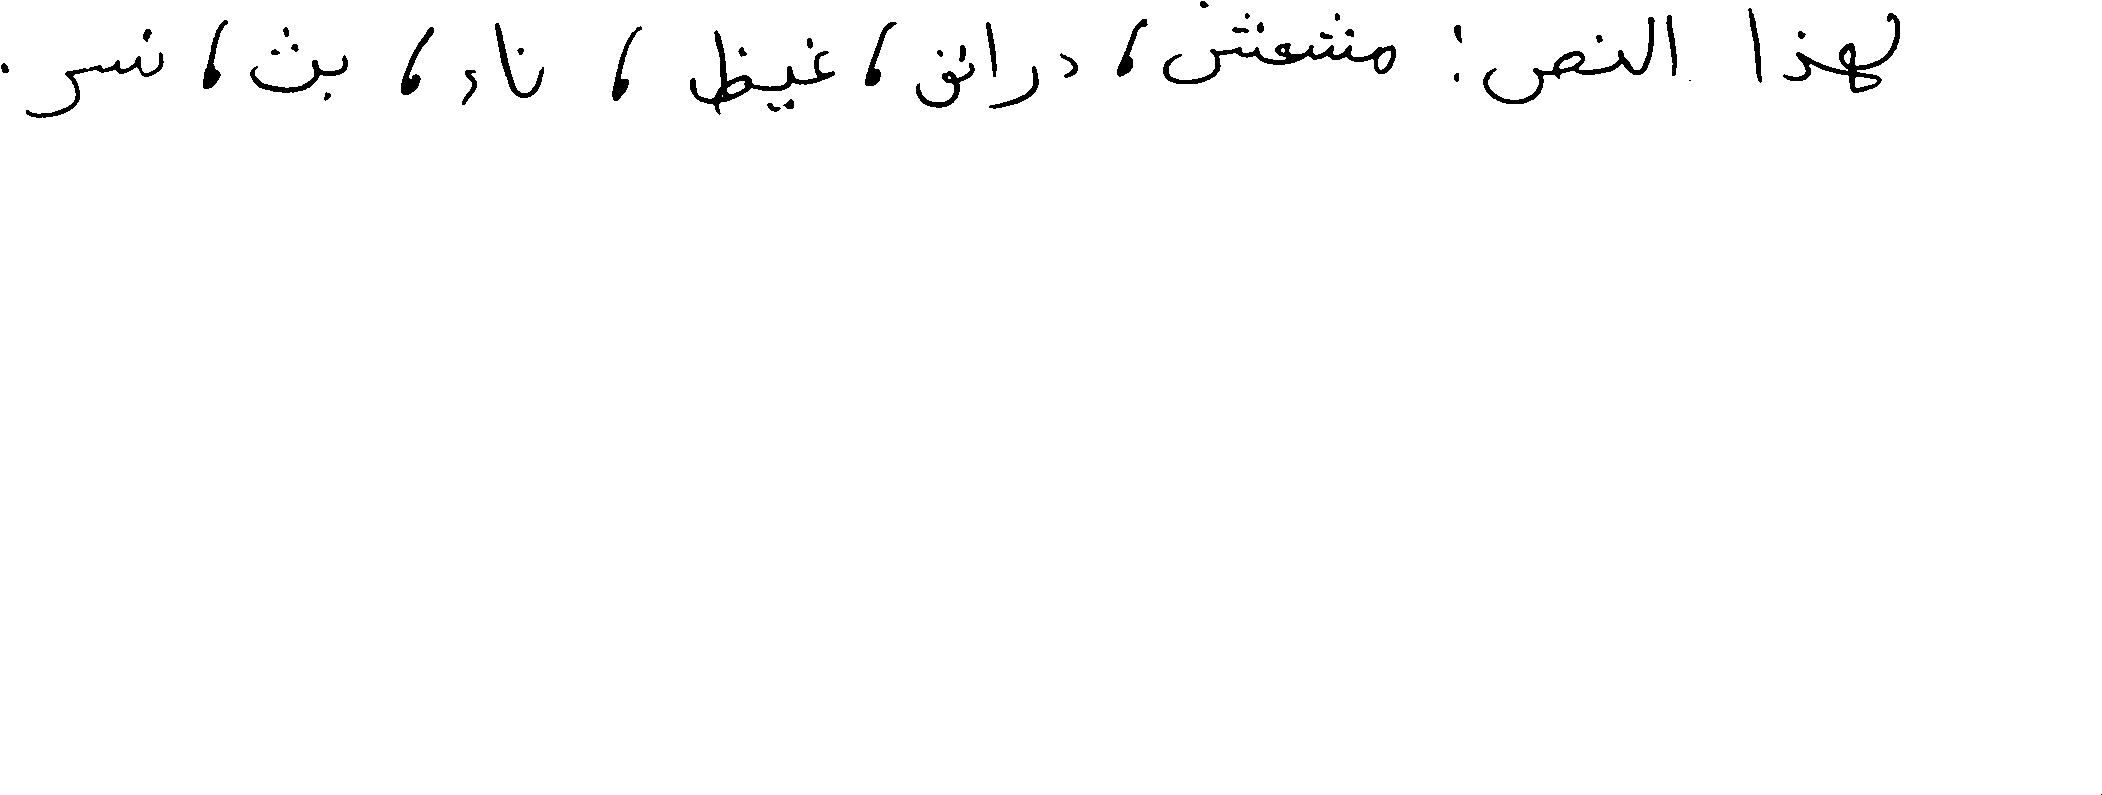 لهذا النص: مشمش، درائق، غيظ، ناء، بث، نسر.